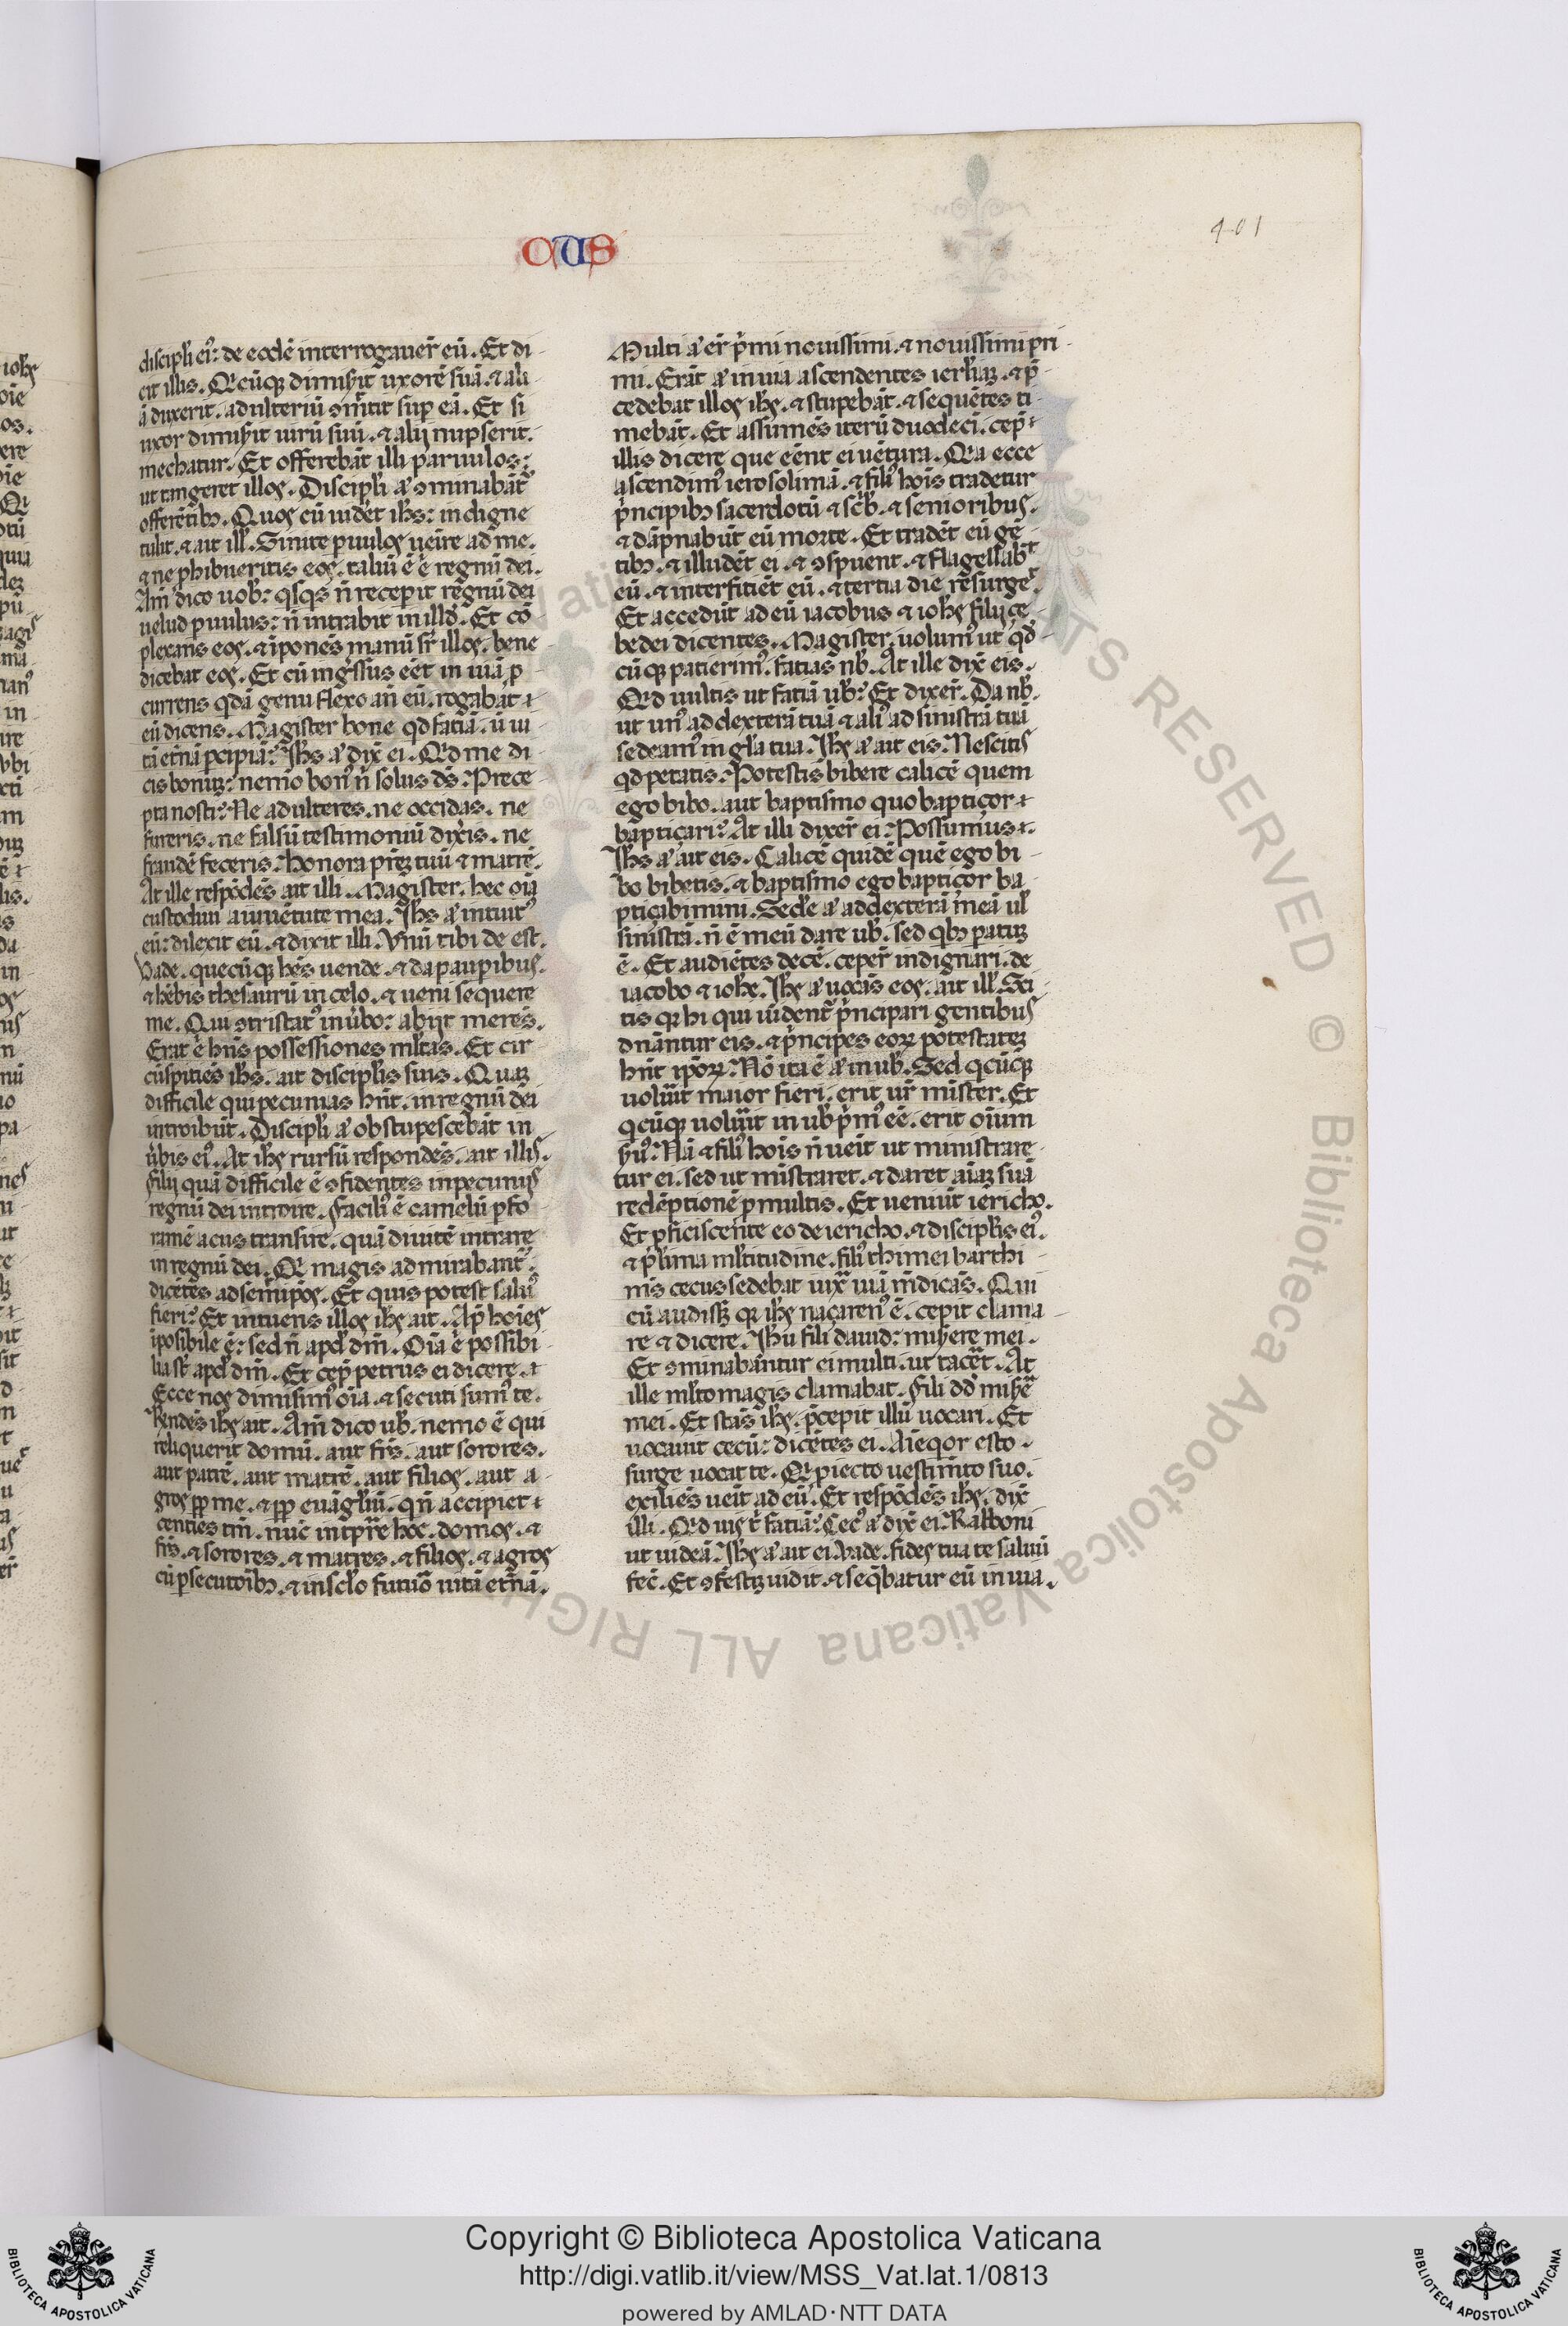 CUS
401
discipl̃i ei᷒: de eodē interrogauer̄ eū. Et di-
cit illis. Qͥcūqꝫ dimiſ̉it uxorē suā. ⁊ ali-
ā duxerit. adulteriū ꝯm̄ittit sup eā. Et si
uxor dimiſ̉it uirū suū. ⁊ alij nupserit.
mechatur. Et offerebāt illi paruulos:
ut tangeret illos. Discipl̃i aͥ ꝯminabāt᷑
offerētibꝫ. Quos cū uidēt ih̄s: indigne
tulit. ⁊ ait ill̃. Sinite ꝑuulos uenire ad me.
⁊ ne phibueritis eos. taliū ē ē regnū dei.
Am̄ dico uob̃: qͥsqͥs n̄ recepit regnū dei
uelud ꝑuulus: n̄ intrabit in illd̃. Et cō-
plexans eos. ⁊ īponēs manū sr̄ illos. bene
dicebat eos. Et cū ingͤssus eēt in uiā ꝓ
currens qͥdā genu flexo an̄ eū. rogabat
eū dicens. Magister bone qͥd fatiā. ū ui-
tā et̄nā ꝑcipiā: Ih̄s aͥ dix̄ ei. Qͥd me di-
cis bonuꝫ: nemo bon᷒ n̄ solus ds̄: Prece
pta nosti: Ne adulteres. ne occidas. ne
fureris. ne falsū testimoniū dix̉is. ne
fraudē feceris. honora pr̄eꝫ tuū ⁊ matrē.
At ille respōdēs ait illi. Magister. hec oīa
custodiui a iuuētute mea. Ih̄s aͥ intuit᷒
eū: dilexit eū. ⁊ dixit illi. Vnū tibi de est.
Vade. quecūqꝫ hēs uende. ⁊ da paupibus.
⁊ hēbis thesaurū in celo. ⁊ ueni sequere
me. Qui ꝯtristat᷒ in ūbo: abijt merēs.
Erat ē hn̄s possessiones ml̃tas. Et cir
cūspities ih̄s. ait discipl̃is suis. Quaꝫ
difficile qui pecunias hn̄t. in regnū dei
introibūt. Discipl̃i aͥ obstupescebāt in
ūbis ei᷒. At ih̄s rursū respondēs. ait illis.
filij quā difficile ē ꝯfidentes in pecunijs
regnū dei introire. facili᷒ ē camelū ꝑ fo-
ramē acus transire. quā diuitē intrare
in regnū dei. Qͥ magis admirabant᷑.
dicētes ad semip̄os. Et quis potest salu᷒
fieri: Et intuens illos ih̄s ait. Ap̄ hoīes
īposibile ē: sed n̄ apd̃ dm̄. Oīa ē possibi-
lia st̄ apd̃ dm̄. Et cep̄ petrus ei dicere.
Ecce nos dimisim᷒ oīa. ⁊ secuti sum᷒ te.
R̄ndēs ih̄s ait. Am̄ dico ub̃. nemo ē qui
reliquerit domū. aut fr̄s. aut sorores.
aut patrē. aut matrē. aut filios. aut a-
gros ꝓp̄ me. ⁊ ꝓp̄ euāgl̃iū. qͥ n̄ accipiet
centies tm̄. nūc in tpr̄e hoc. domos. ⁊
fr̄s. ⁊ sorores. ⁊ matres. ⁊ filios. ⁊ agros
cū ꝑsecutoībꝫ. ⁊ in scl̃o futuo uitā et̄nā.
Multi aͥ er̄t pͥmi nouissimi. ⁊ nouissimi pri-
mi. Erāt aͥ in uia ascendentes ierl̃iaꝫ. ⁊ p̄-
cedebat illos ih̄s. ⁊ stupebāt. ⁊ sequētes ti-
mebāt. Et assumēs iterū duodeci. cep̄
illis dicere que eēnt ei uētura. Qͥa ecce
ascendim᷒ ierosolimā. ⁊ fili᷒ hoīs tradetur
pͥncipibꝫ sacerdotū ⁊ scͥb̃. ⁊ senioribus.
⁊ dāpnabūt eū morte. Et tradēt eū gē-
tibꝫ. ⁊ illudēt ei. ⁊ ꝯspuent. ⁊ flagellab̄t
eū. ⁊ interfitiēt eū. ⁊ tertia die resurget.
Et accedūt ad eū iacobus ⁊ ioh̄s filij çe-
bedei dicentes. Magister. uolum᷒ ut qͥd-
cūqꝫ patierim᷒. fatias nb̃. At ille dix̄ eis.
Qͥd uultis ut fatiā ub̃: Et dixer̄. Da nb̃.
ut un᷒ ad dexterā tuā ⁊ ali᷒ ad sinistrā tuā
sedeam᷒ in gl̃a tua. Ih̄s aͥ ait eis. Nescitis
qͥd petatis. Potestis bibere calicē quem
ego bibo. aut baptismo quo baptiçor
baptiçari: At illi dixer̄ ei: Possumus.
Ih̄s aͥ ait eis. Calicē quidē quē ego bi-
bo bibetis. ⁊ baptismo ego baptiçor ba-
ptiçabimini. Sed̃e aͥ ad dexterā meā ul̃
sinistrā. n̄ ē meū dare ub̃. sed qͥbꝫ paratuꝫ
ē. Et audiētes decē. ceper̄ indignari. de
iacobo ⁊ ioh̄e. Ih̄s aͥ uocās eos. ait ill̃. Sci-
tis qͥ hi qui uident᷑ pͥncipari gentibus
dn̄antur eis. ⁊ pͥncipes eoꝝ potestateꝫ
hn̄t ip̄oꝝ: Nō ita ē aͥ in ub̃. Sed qͥcūqꝫ
uolūit maior fieri. erit ur̄ mister. Et
qͥcūqꝫ uolūit in ub̃ pͥm᷒ eē. erit oīum
ſ̉u᷒. Nā ⁊ fili᷒ hoīs n̄ ueīt ut ministrare-
tur ei. sed ut mīstraret. ⁊ daret aīaꝫ suā
redēptionē ꝑ multis. Et ueniūt iericho.
Et ꝓficiscente eo de iericho. ⁊ discipl̃is ei᷒.
⁊ pl̃ima ml̃titudine. fili᷒ thimei barthi-
meus cecus sedebat iuxͣ uiā mendicās. Qui
cū audissꝫ qͥ ih̄s naçaren᷒ ē. cepit clama-
re ⁊ dicere. Ih̄u fili dauid: miſ̉ere mei.
Et ꝯminabantur ei multi. ut tac̄et. At
ille ml̃to magis clamabat. fili dd̄ miſ̉e
mei. Et stās ih̄s. p̄cepit illū uocari. Et
uocant cecū: dicētes ei. Aīeqͥor esto.
surge uocat te. Qͥ ꝓiecto uestim̄to suo.
exiliēs ueīt ad eū. Et respōdēs ih̄s. dix̄
illi. Qͥd uis t̉ fatiā: Cec᷒ aͥ dix̄ ei: Rabboni
ut uideā. Ih̄s aͥ ait ei. Vade. fides tua te saluū
fec̄. Et ꝯfestiꝫ uidit. ⁊ seqͣbatur eū in uia.
Copyright © Biblioteca Apostolica Vaticana
http://digi.vatlib.it/view/MSS_Vat.lat.1/0813
powered by AMLAD·NTT DATA
BIBLIOTECA APOSTOLICA VATICANA
BIBLIOTECA APOSTOLICA VATICANA
© Biblioteca Apostolica Vaticana ALL RIGHTS RESERVED